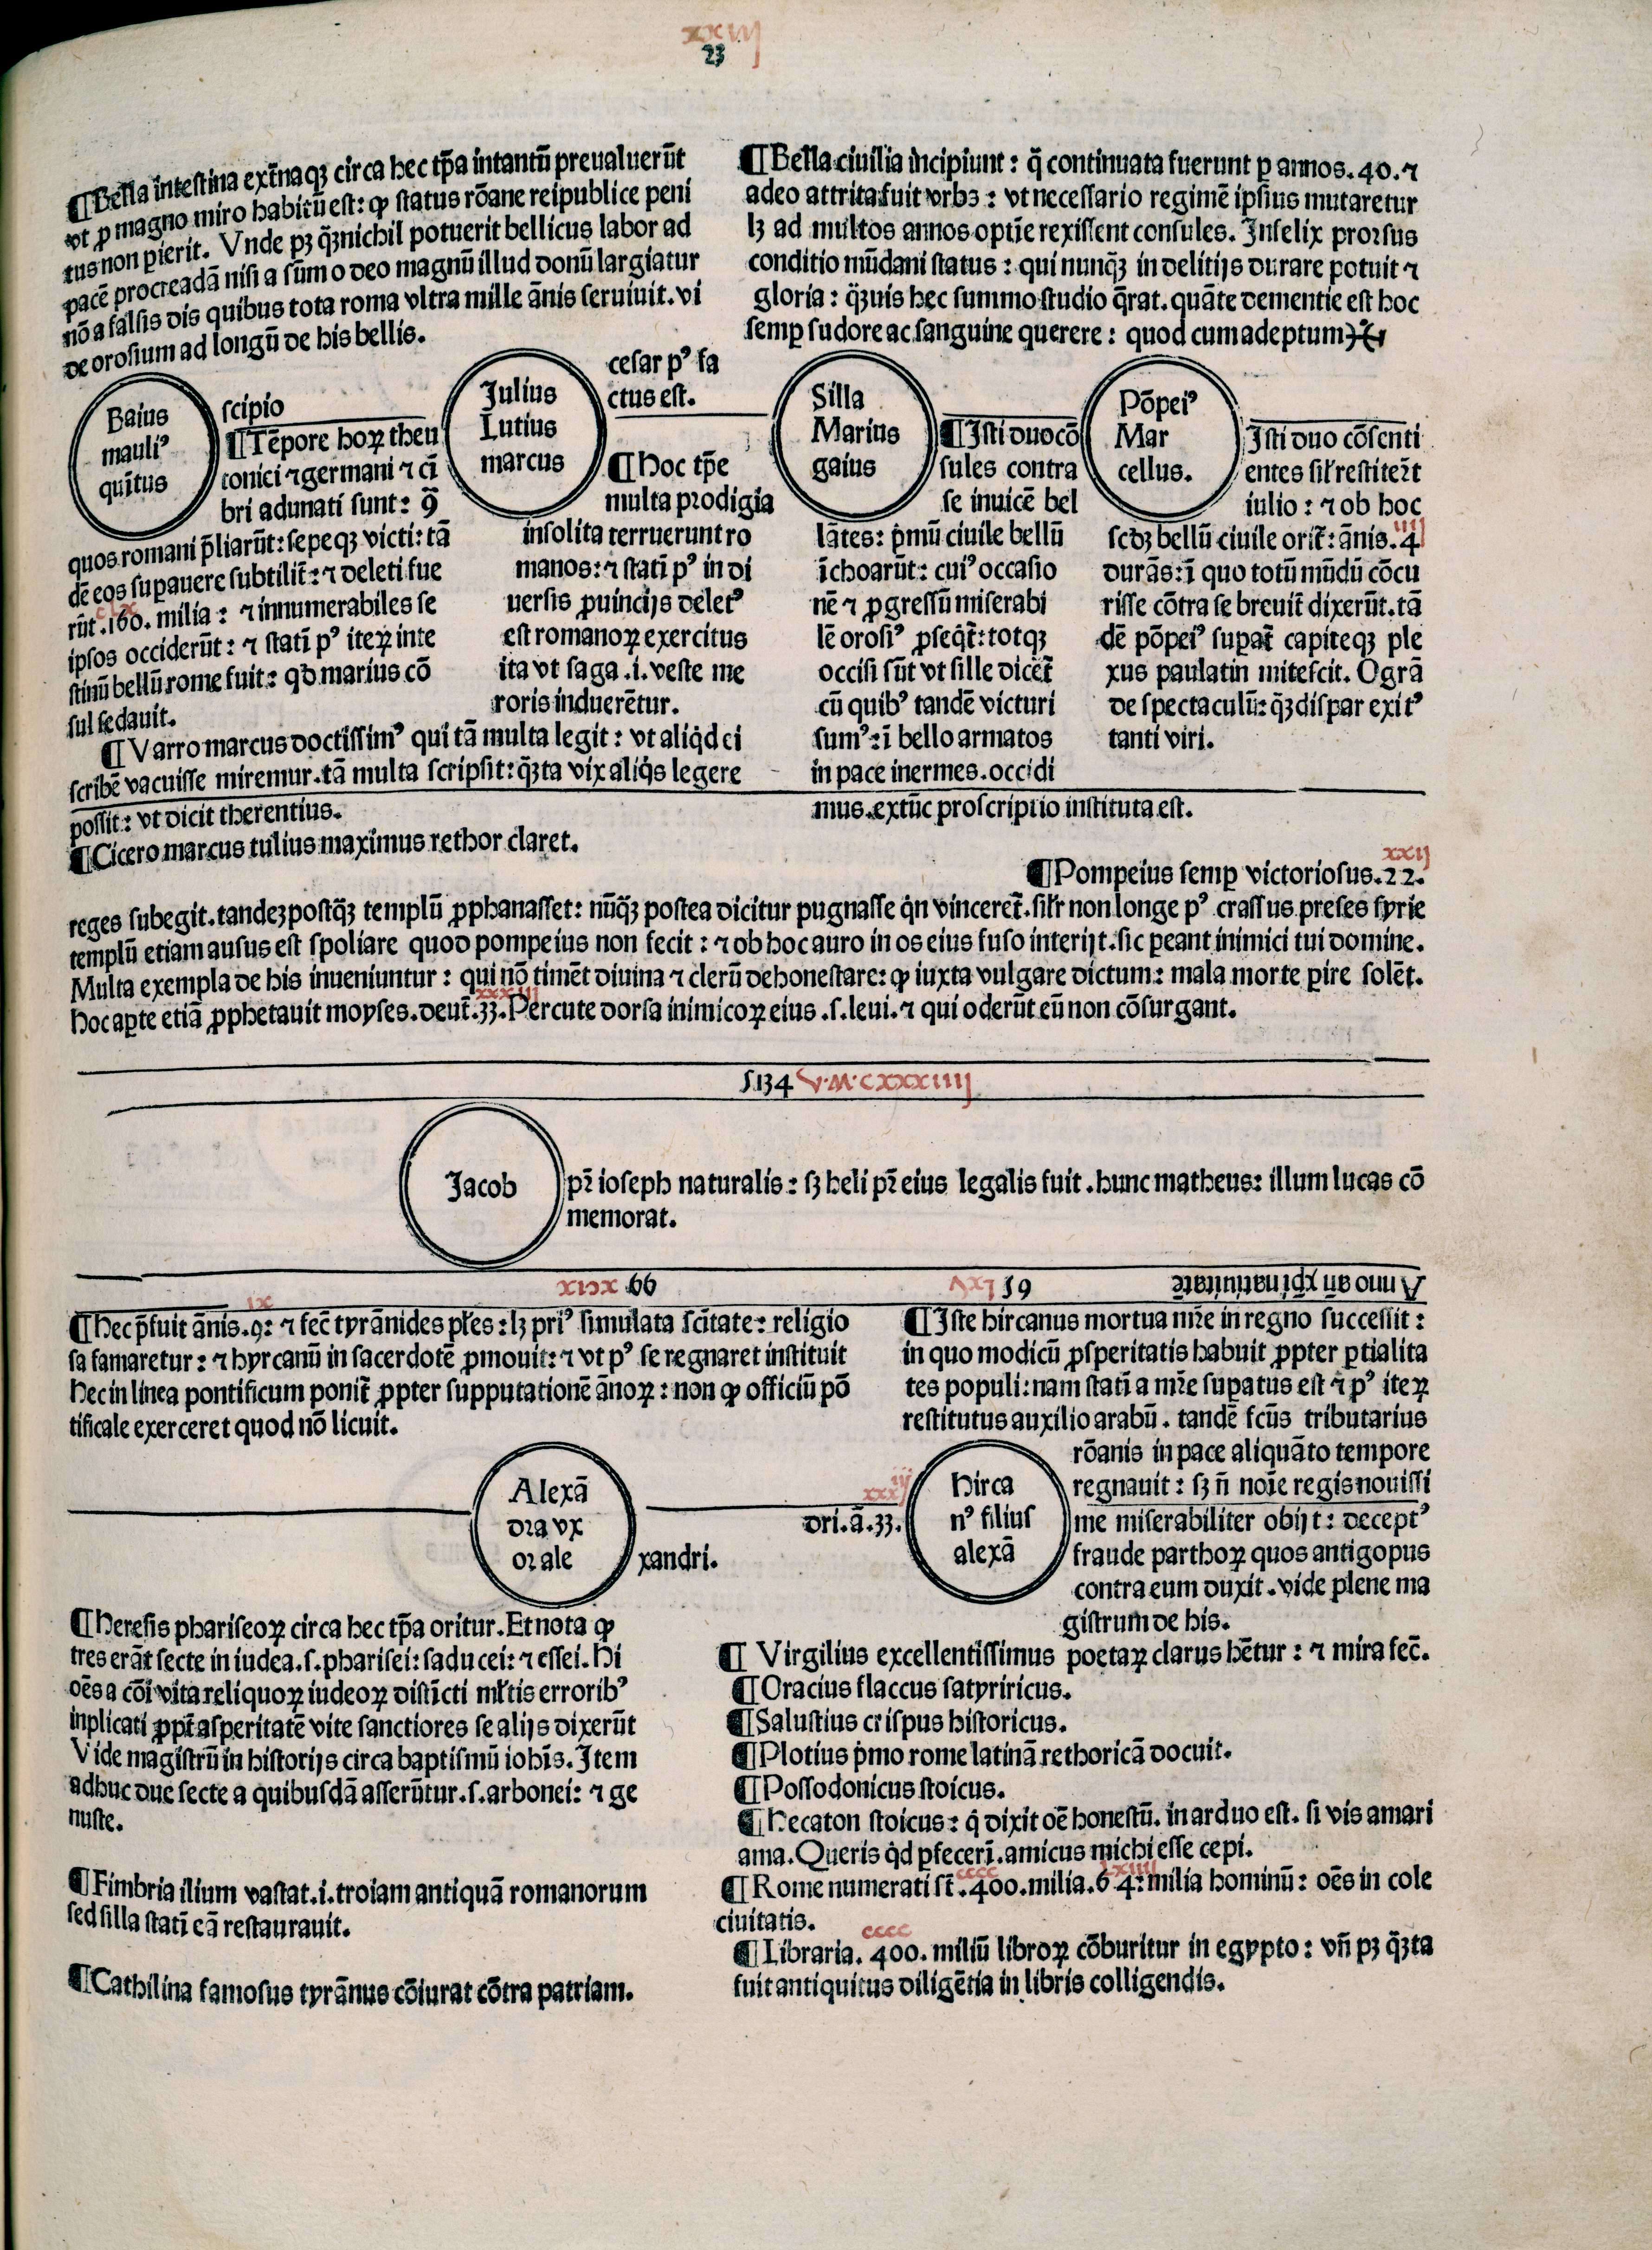 xxiij
23
¶Bella intestina ext̄naqꝫ circa hec tp̄a intantū preualuerūt
vt ꝑ magno miro habitū est: ꝙ status rōane reipublice peni
tus non ꝑierit. Vnde pꝫ q̄ꝫnichil potuerit bellicus labor ad
pacē procreadā nisi a sūmo deo magnū illud donū largiatur
nō a falsis dis quibus tota roma vltra mille ānis seruiuit. vi
de orosium ad longū de his bellis.
¶Bella ciuilia incipiunt: q̄ continuata fuerunt ꝑ annos. 40. ⁊
adeo attrita fuit vrbs: vt necessario regimē ipsius mutaretur
lꝫ ad multos annos optīe rexissent consules. Infelix prorsus
conditio mūdani status: qui nunq̄ꝫ in delitijs durare potuit ⁊
gloria: q̄ꝫuis hec summo studio q̄rat. quāte dementie est hoc
semꝑ sudore ac sanguine querere: quod cum adeptum
Baius
mauliꝰ
quītus
scipio
¶Tēpore hoꝝ theu
tonici ⁊ germani ⁊ cī
bri adunati sunt: ꝯ̄
quos romani p̄liarūt: sepeqꝫ victi: tā
dē eos suꝑauere subtilit̄: ⁊ deleti fue
clx
rūt. 160. milia: ⁊ innumerabiles se
ipsos occiderūt: ⁊ statī pꝰ iteꝝ inte
stinū bellū rome fuit: qd marius cō
sul sedauit.
Julius
Lutius
marcus
cesar pꝰ fa
ctus est.
¶Hoc tp̄e
multa prodigia
insolita terruerunt ro
manos: ⁊ statī pꝰ in di
uersis ꝓuincijs deletꝰ
est romanoꝝ exercitus
ita vt saga .i. veste me
roris induerētur.
Silla
Marius
gaius
¶Isti duo cō
sules contra
se inuicē bel
lātes: p̄mū ciuile bellū
īchoarūt: cuiꝰ occasio
nē ⁊ ꝓgressū miserabi
lē orosiꝰ ꝓseq̄t: totqꝫ
occisi sūt vt sille dicet̄
cū quibꝰ tandē victuri
sumꝰ: ī bello armatos
in pace inermes. occidi
mus. extūc proscriptio instituta est.
Pōpeiꝰ
Mar
cellus.
Isti duo cōsenti
entes sil̄r restiter̄t
iulio: ⁊ ob hoc
iiij
scd̄ꝫ bellū ciuile orit̄: ānis. 4
durās: ī quo totū mūdū cōcu
risse cōtra se breuit̄ dixerūt. tā
dē pōpeiꝰ suꝑat̄ capiteqꝫ ple
xus paulatin mitescit. O grā
de spectaculū: q̄ꝫ dispar exitꝰ
tanti viri.
¶Varro marcus doctissimꝰ qui tā multa legit: vt aliqd ei
scribē vacuisse miremur. tā multa scripsit: q̄ꝫta vix aliq̄s legere
possit: vt dicit therentius.
¶Cicero marcus tulius maximus rethor claret.
xxij
¶Pompeius semꝑ victoriosus. 22.
reges subegit. tandeꝫ postq̄ꝫ templū ꝓphanasset: nūq̄ꝫ postea dicitur pugnasse qn vinceret̄. sil̄r non longe pꝰ crassus preses syrie
templū etiam ausus est spoliare quod pompeius non fecit: ⁊ ob hoc auro in os eius fuso interijt. sic ꝑeant inimici tui domine.
Multa exempla de his inueniuntur: qui nō timēt diuina ⁊ clerū dehonestare: ꝙ iuxta vulgare dictum: mala morte ꝑire solēt.
xxxiij
hoc aꝑte etiā ꝓphetauit moyses. deut̄. 33. Percute dorsa inimicoꝝ eius .s. leui. ⁊ qui oderūt eū non cōsurgant.
5134 V·M·CXXXIIIJ
Jacob
pr̄ ioseph naturalis: sꝫ heli pr̄ eius legalis fuit. hunc matheus: illum lucas cō
memorat.
Anno an̄ xp̄i natiuitatē
59 lxv
66 xcix
ix
¶Hec p̄fuit ānis. 9: ⁊ fec̄ tyrānides ples: lꝫ priꝰ simulata sc̄itate: religio
sa famaretur: ⁊ hyrcanū in sacerdotē ꝓmouit: ⁊ vt pꝰ se regnaret instituit
hec in linea pontificum ponit̄ ꝓpter supputationē ānoꝝ: non ꝙ officiū pō
tificale exerceret quod nō licuit.
¶Iste hircanus mortua mr̄e in regno successit:
in quo modicū ꝓsperitatis habuit ꝓpter ꝑtialita
tes populi: nam statī a mr̄e suꝑatus est ⁊ pꝰ iteꝝ
restitutus auxilio arabū. tandē fc̄us tributarius
rōanis in pace aliquāto tempore
regnauit: sꝫ n̄ noīe regis nouissi
me miserabiliter obijt: deceptꝰ
fraude parthoꝝ quos antigopus
contra eum duxit. vide plene ma
gistrum de his.
Alexā
dra vx
or ale
xandri.
xxxiij
dri. ā. 33.
Hirca
nꝰ filius
alexā
¶Heresis phariseoꝝ circa hec tp̄a oritur. Et nota ꝙ
tres erāt secte in iudea. s. pharisei: saducei: ⁊ essei. Hi
oēs a cōi vita reliquoꝝ iudeoꝝ distīcti ml̄tis erroribꝰ
inplicati ꝓpt̄ asperitatē vite sanctiores se alijs dixerūt
Vide magistrū in historijs circa baptismū iohīs. Item
adhuc due secte a quibusdā asserūtur. s. arbonei: ⁊ ge
nuste.
¶Fimbria ilium vastat .i. troiam antiquā romanorum
sed silla statī eā restaurauit.
¶Cathilina famosus tyrānus cōiurat cōtra patriam.
¶ Virgilius excellentissimus poetaꝝ clarus hētur: ⁊ mira fec̄.
¶Oracius flaccus satyriricus.
¶Salustius crispus historicus.
¶Plotius p̄mo rome latinā rethoricā docuit.
¶Possodonicus stoicus.
¶Hecaton stoicus: q̄ dixit oē honestū. in arduo est. si vis amari
ama. Queris qd ꝓfecerī. amicus michi esse cepi.
cccc lxiiij
¶Rome numerati st̄. 400. milia. 64: milia hominū: oēs in cole
ciuitatis.
cccc
¶Libraria. 400. miliū libroꝝ cōburitur in egypto: vn̄ pꝫ q̄ꝫta
fuit antiquitus diligētia in libris colligendis.